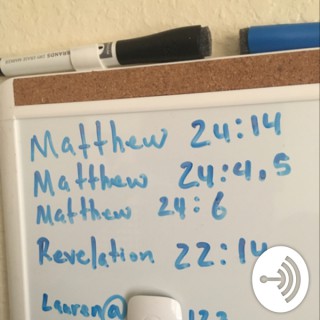 Matthew 24:14
Matthew 24:4,5
Matthew 24:6
Revelation 22:14
Lauren@